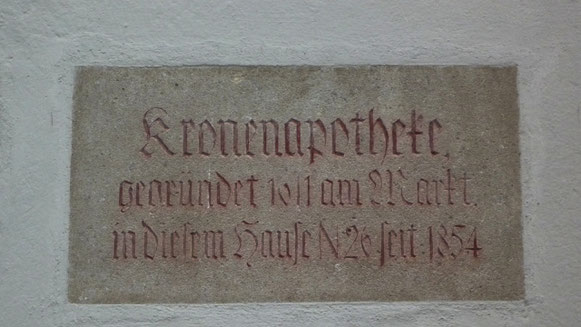 Kronenapotheke,
gegründet 1611 am Markt,
in diesem Hause N26 seit 1854